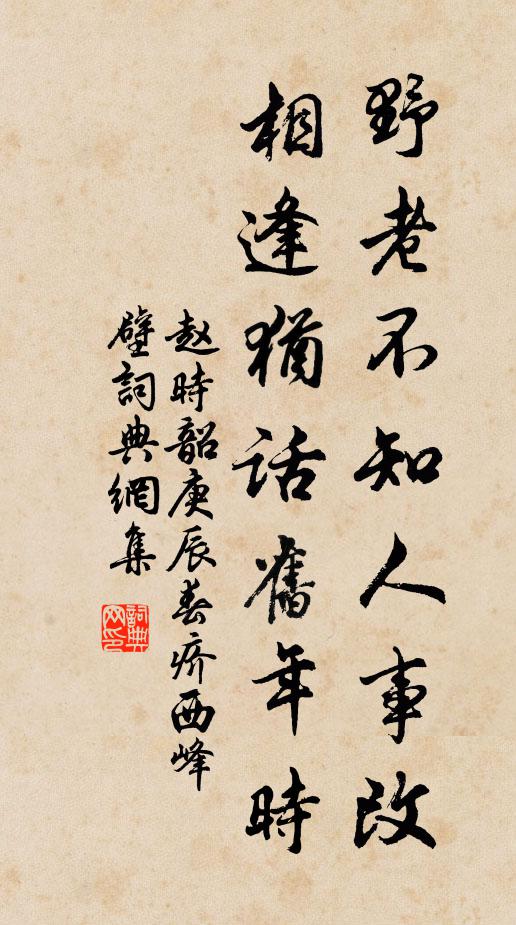 野老不知人事改
相逢猶話舊年時
赵時韶庚辰春疥西峰
壁詞典網集
詞典網印